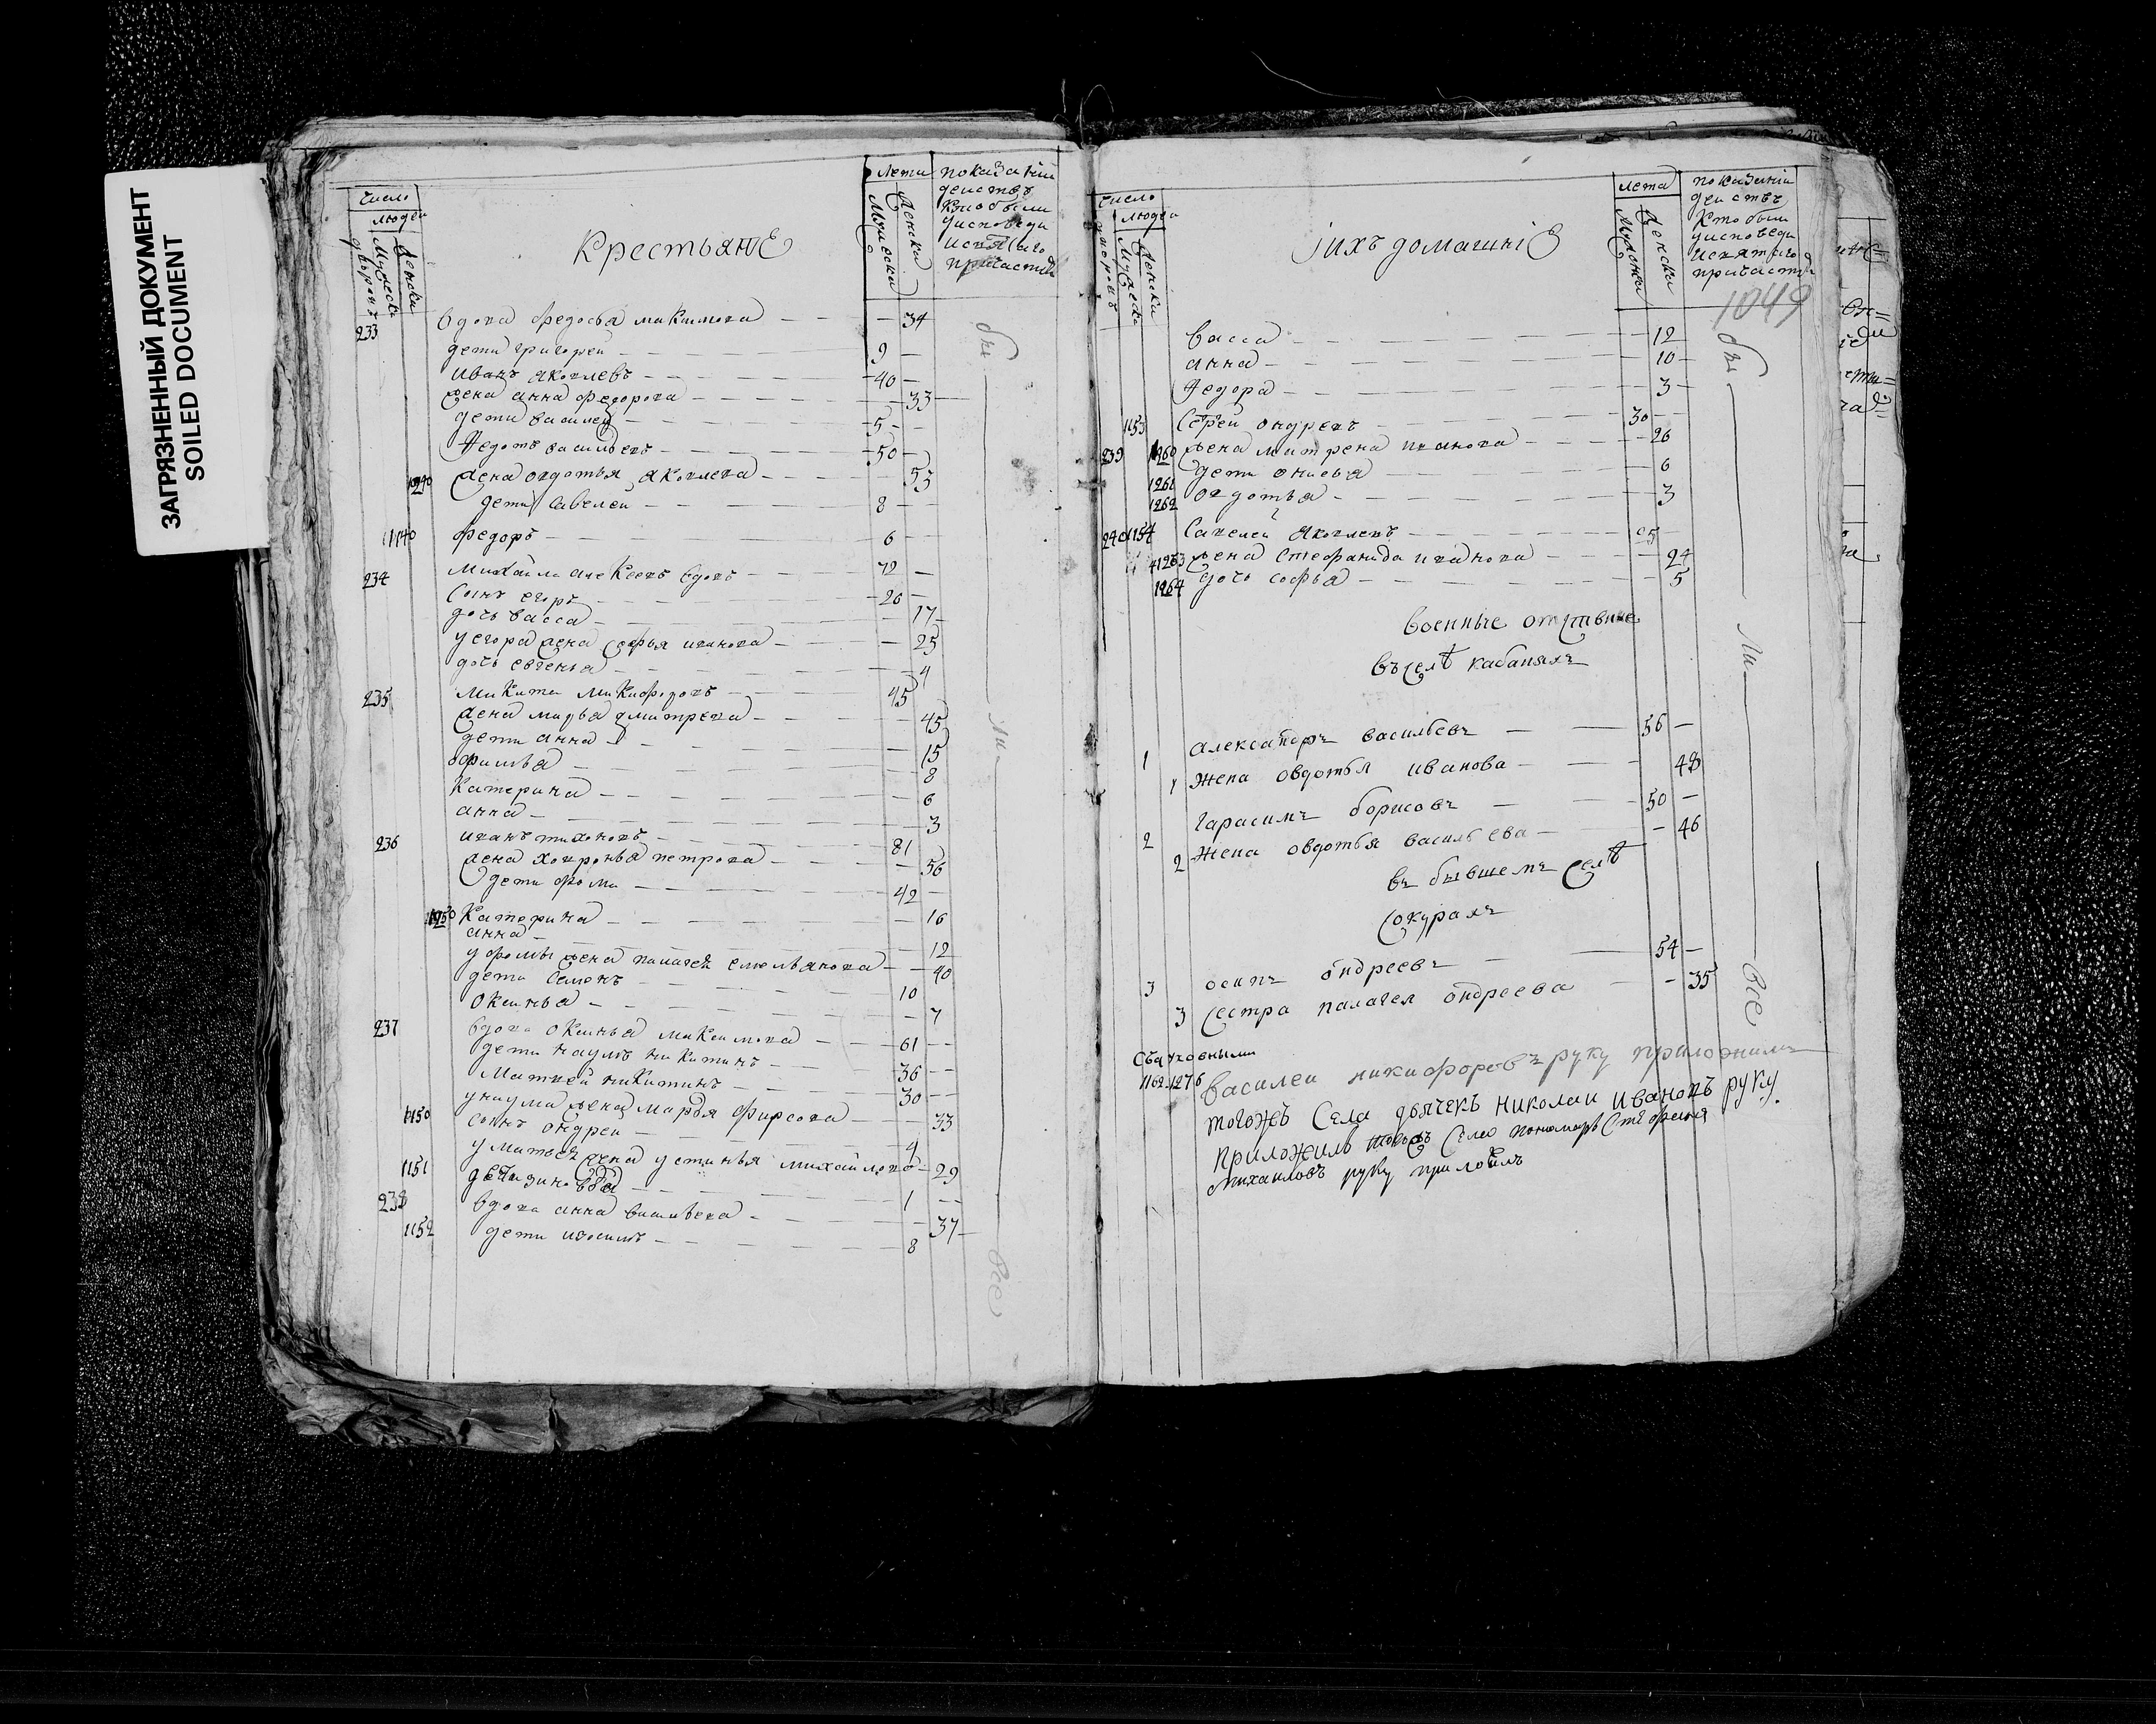 ЗАГРЯЗНЕННЫЙ ДОКУМЕНТ
SOILED DOCUMENT
число
людей
дворовъ
Мужеска
женска
Крестьяне
лета
Мужески
женски
показаніи
действъ
кто были
у исповеди
и святаго
причастия
233 вдова федосья максимова — 34
дети григорей — 9 —
иванъ яковлевъ — 40 —
жена анна федорова — 33 —
дети василей — 5 —
Федотъ васильевъ — 50 —
1240 жена овдотья яковлева — 53
дети савелей — 8 —
1140 федоръ — 6 —
234 михаила алексеевъ вдовъ — 72 —
сынъ егоръ — 26 —
дочь васса — 17
у егора жена софья иванова — 25
дочь евгенья — 4
235 микита микифоровъ — 45
жена марья дмитрева — 45
дети анна — 15
офимья — 8
Катерина — 6
анна — 3
236 иванъ тихоновъ — 81
жена ховронья петрова — 56
дети фома — 42 —
1250 Катерина — 16
анна — 12
у фомы жена палагея емельянова — 40
дети семенъ — 10
оксинья — 7
237 вдова оксинья максимова — 61 —
дети наумъ никитинъ — 36 —
Матвей никитинъ — 30 —
у наума жена марья фирсова — 33
1150 сынъ ондрей — 4
у матвея жена устинья михайлова — 29
1151 дети зиновей — 1 —
238 вдова анна васильева — 37 —
1152 дети изосимъ — 8
бы
ли
все
число
людей
дворовъ
Мужеска
женска
іихъ домашніе
лета
Мужески
женски
показаніи
действъ
кто были
у исповеди
и святаго
причастия
1049
васса — 12
анна — 10 —
Федора — 3 —
1153 Сергей ондревъ — 30 —
239 1260 жена матрена иванова — 26
1261 дети онисья — 6
1262 овдотья — 3
240 1154 Савелей яковлевъ — 25 —
1263 жена стефанида иванова — 24
1264 дочь софья — 5
военные отставные
въ селѣ кабаняхъ
1 александръ васильевъ — 56 —
1 жена овдотья иванова — 48
2 гарасимъ борисовъ — 50 —
2 жена овдотья васильева — 46
въ бывшемъ селѣ
сокурахъ
3 осипъ ондреевъ — 54 —
3 сестра палагея ондреева — 35
бы
ли
все
Съ духовными
1162 1276
василеи никифоровъ руку приложилъ
тогожъ Села дьячекъ николаи Ивановъ руку
приложилъ тогожъ Села пономарь
михаиловъ руку приложилъ